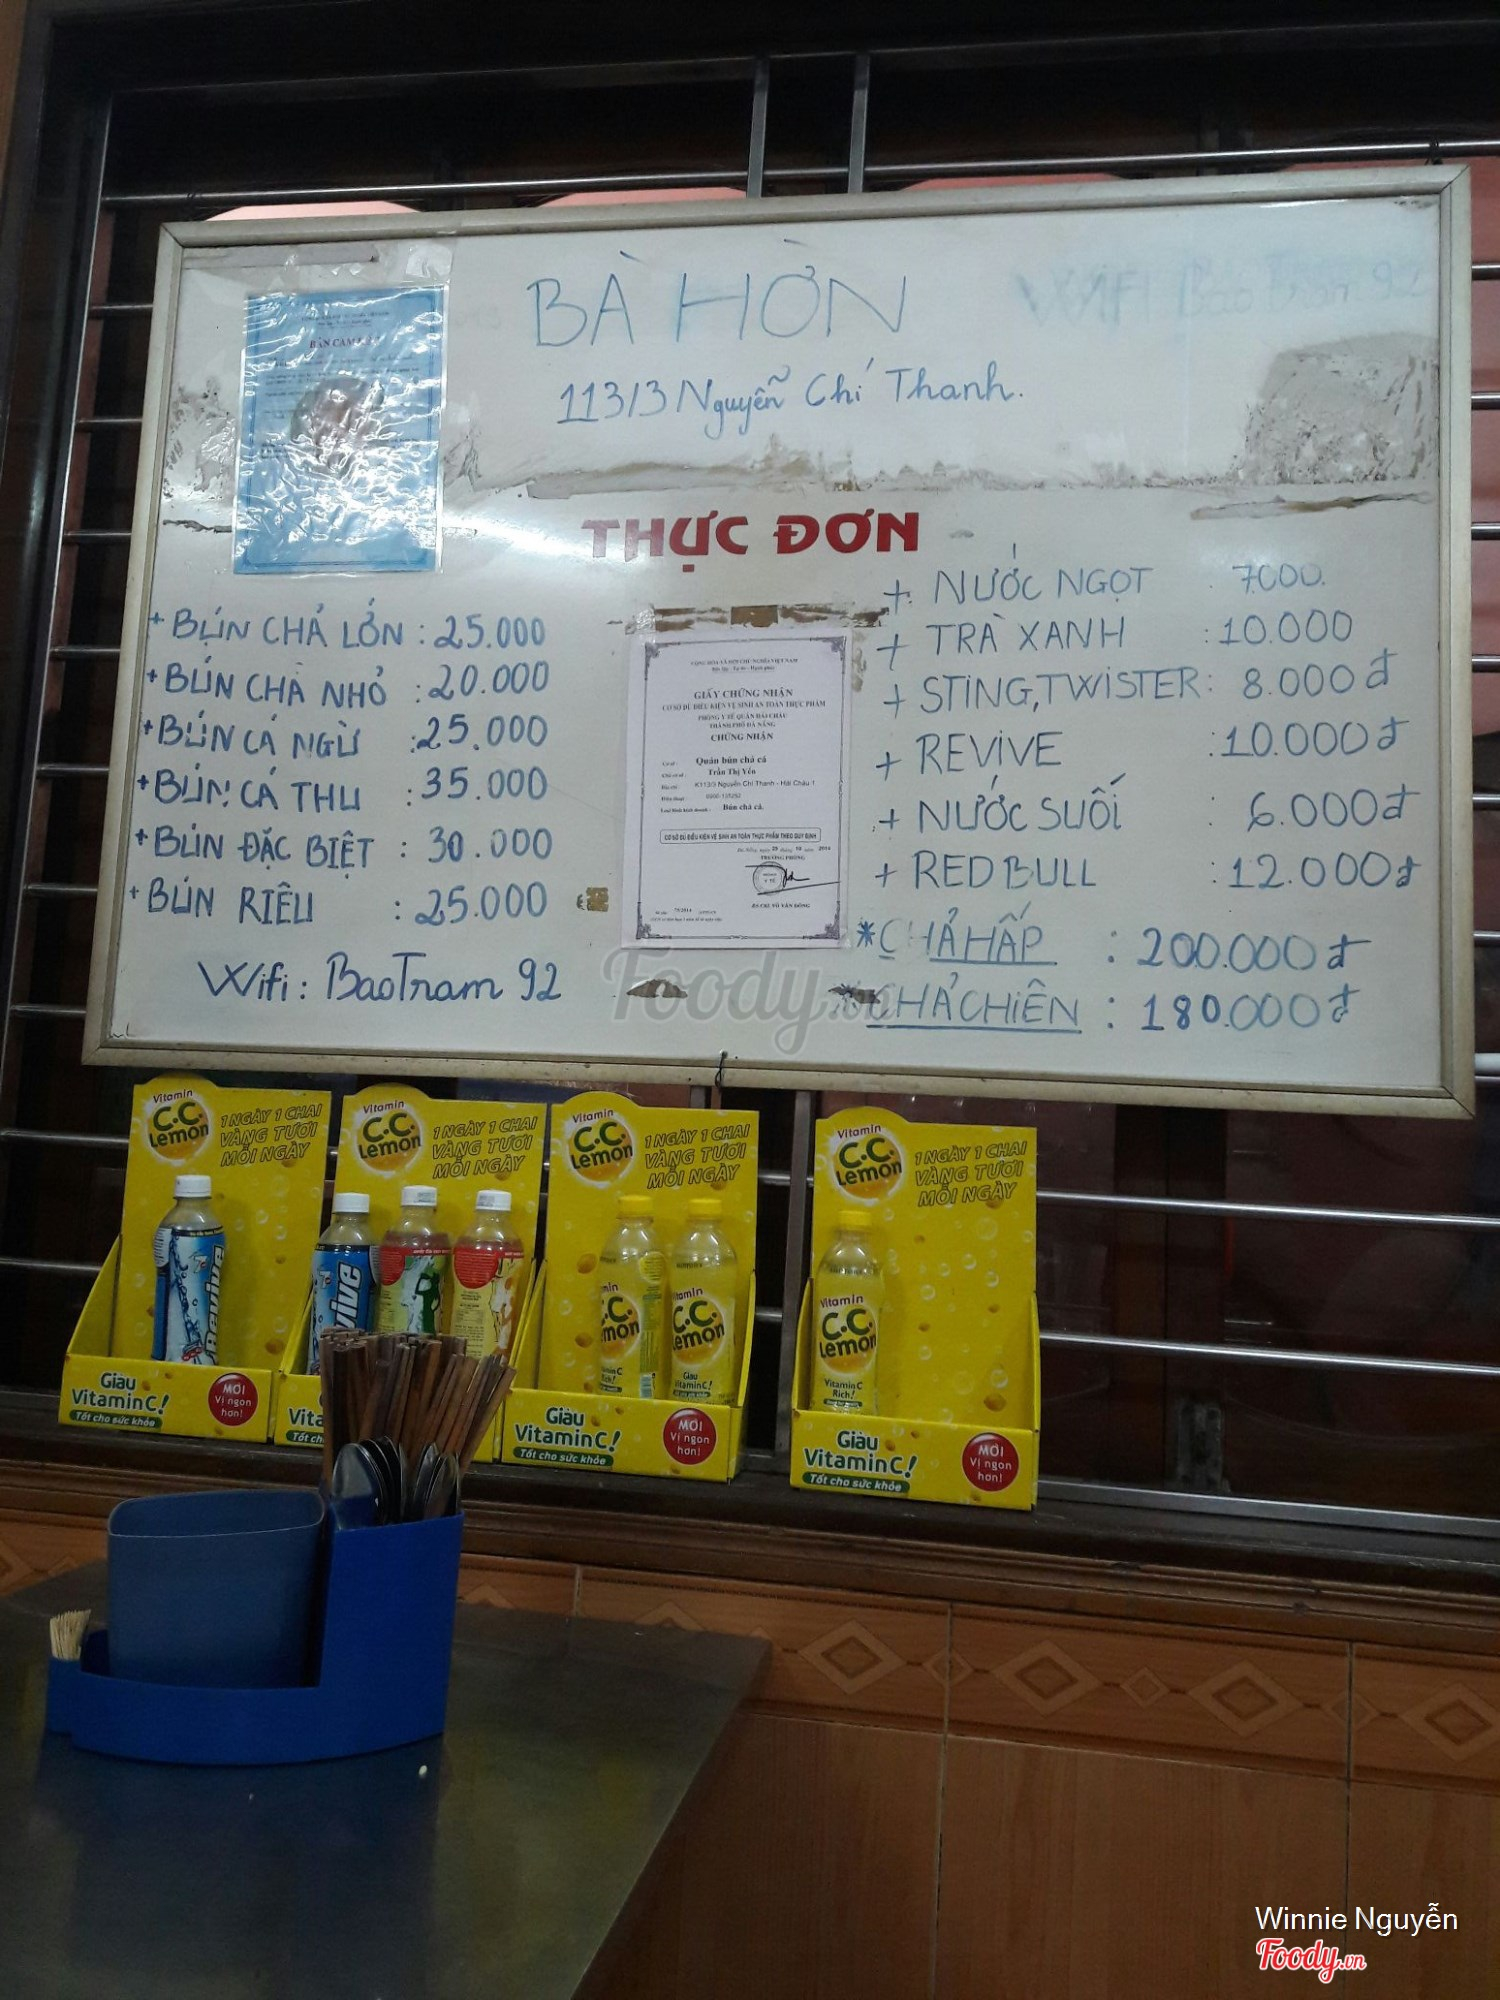 BÀ HỜN
113/3 Nguyễn Chí Thanh.
THỰC ĐƠN
+ BÚN CHẢ LỚN : 25.000
+ BÚN CHẢ NHỎ : 20.000
+ BÚN CÁ NGỪ : 25.000
+ BÚN CÁ THU : 35.000
+ BÚN ĐẶC BIỆT : 30.000
+ BÚN RIÊU : 25.000
Wifi : BaoTram 92
+ NƯỚC NGỌT : 7000.
+ TRÀ XANH : 10.000
+ STING, TWISTER : 8.000đ
+ REVIVE : 10.000đ
+ NƯỚC SUỐI : 6.000đ
+ RED BULL : 12.000đ
* CHẢ HẤP : 200.000đ
* CHẢ CHIÊN : 180.000đ
BẢN CAM
CỘNG HÒA XÃ HỘI CHỦ NGHĨA VIỆT NAM
Độc lập - Tự do - Hạnh phúc
GIẤY CHỨNG NHẬN
CƠ SỞ ĐỦ ĐIỀU KIỆN VỆ SINH AN TOÀN THỰC PHẨM
PHÒNG Y TẾ QUẬN HẢI CHÂU
THÀNH PHỐ ĐÀ NẴNG
CHỨNG NHẬN
Quán bún chả cá
Trần Thị Yến
K113/3 Nguyễn Chí Thanh - Hải Châu 1
Bún chả cá.
CƠ SỞ ĐỦ ĐIỀU KIỆN VỆ SINH AN TOÀN THỰC PHẨM THEO QUY ĐỊNH
TRƯỞNG PHÒNG
Foody.vn
Vitamin
C.C.
Lemon
1 NGÀY 1 CHAI
VÀNG TƯƠI
MỖI NGÀY
Vitamin
C.C.
Lemon
1 NGÀY 1 CHAI
VÀNG TƯƠI
MỖI NGÀY
Vitamin
C.C.
Lemon
1 NGÀY 1 CHAI
VÀNG TƯƠI
MỖI NGÀY
Vitamin
C.C.
Lemon
1 NGÀY 1 CHAI
VÀNG TƯƠI
MỖI NGÀY
Revive
vive
Vitamin
C.C.
Lemon
Vitamin C
Rich!
Giàu
Vitamin C!
Giàu
Vitamin C!
Tốt cho sức khỏe
MỚI
Vị ngon
hơn!
Giàu
Vitamin C!
Tốt cho sức khỏe
MỚI
Vị ngon
hơn!
Giàu
Vitamin C!
Tốt cho sức khỏe
MỚI
Vị ngon
hơn!
Winnie Nguyễn
Foody.vn